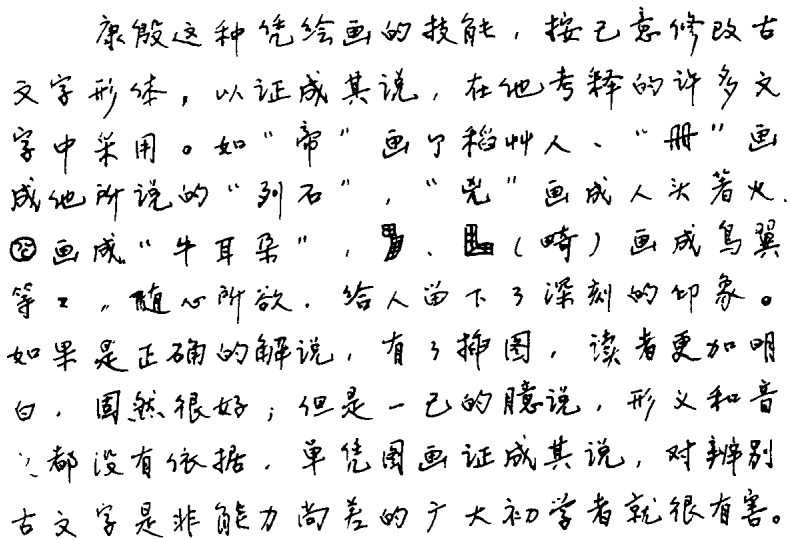 康殷这种凭绘画的技能，按己意修改古
文字形体，以证成其说，在他考释的许多文
字中采用。如“帝”画了稻艸人、“冊”画
成他所说的“列石”，“兇”画成人头着火、
画成“牛耳朵”，、（畸）画成鸟翼
等々，随心所欲．给人留下了深刻的印象。
如果是正确的解说，有了插图，读者更加明
白．固然很好；但是一己的臆说，形义和音
都没有依据．单凭图画证成其说，对辨别
古文字是非能力尚差的广大初学者就很有害。